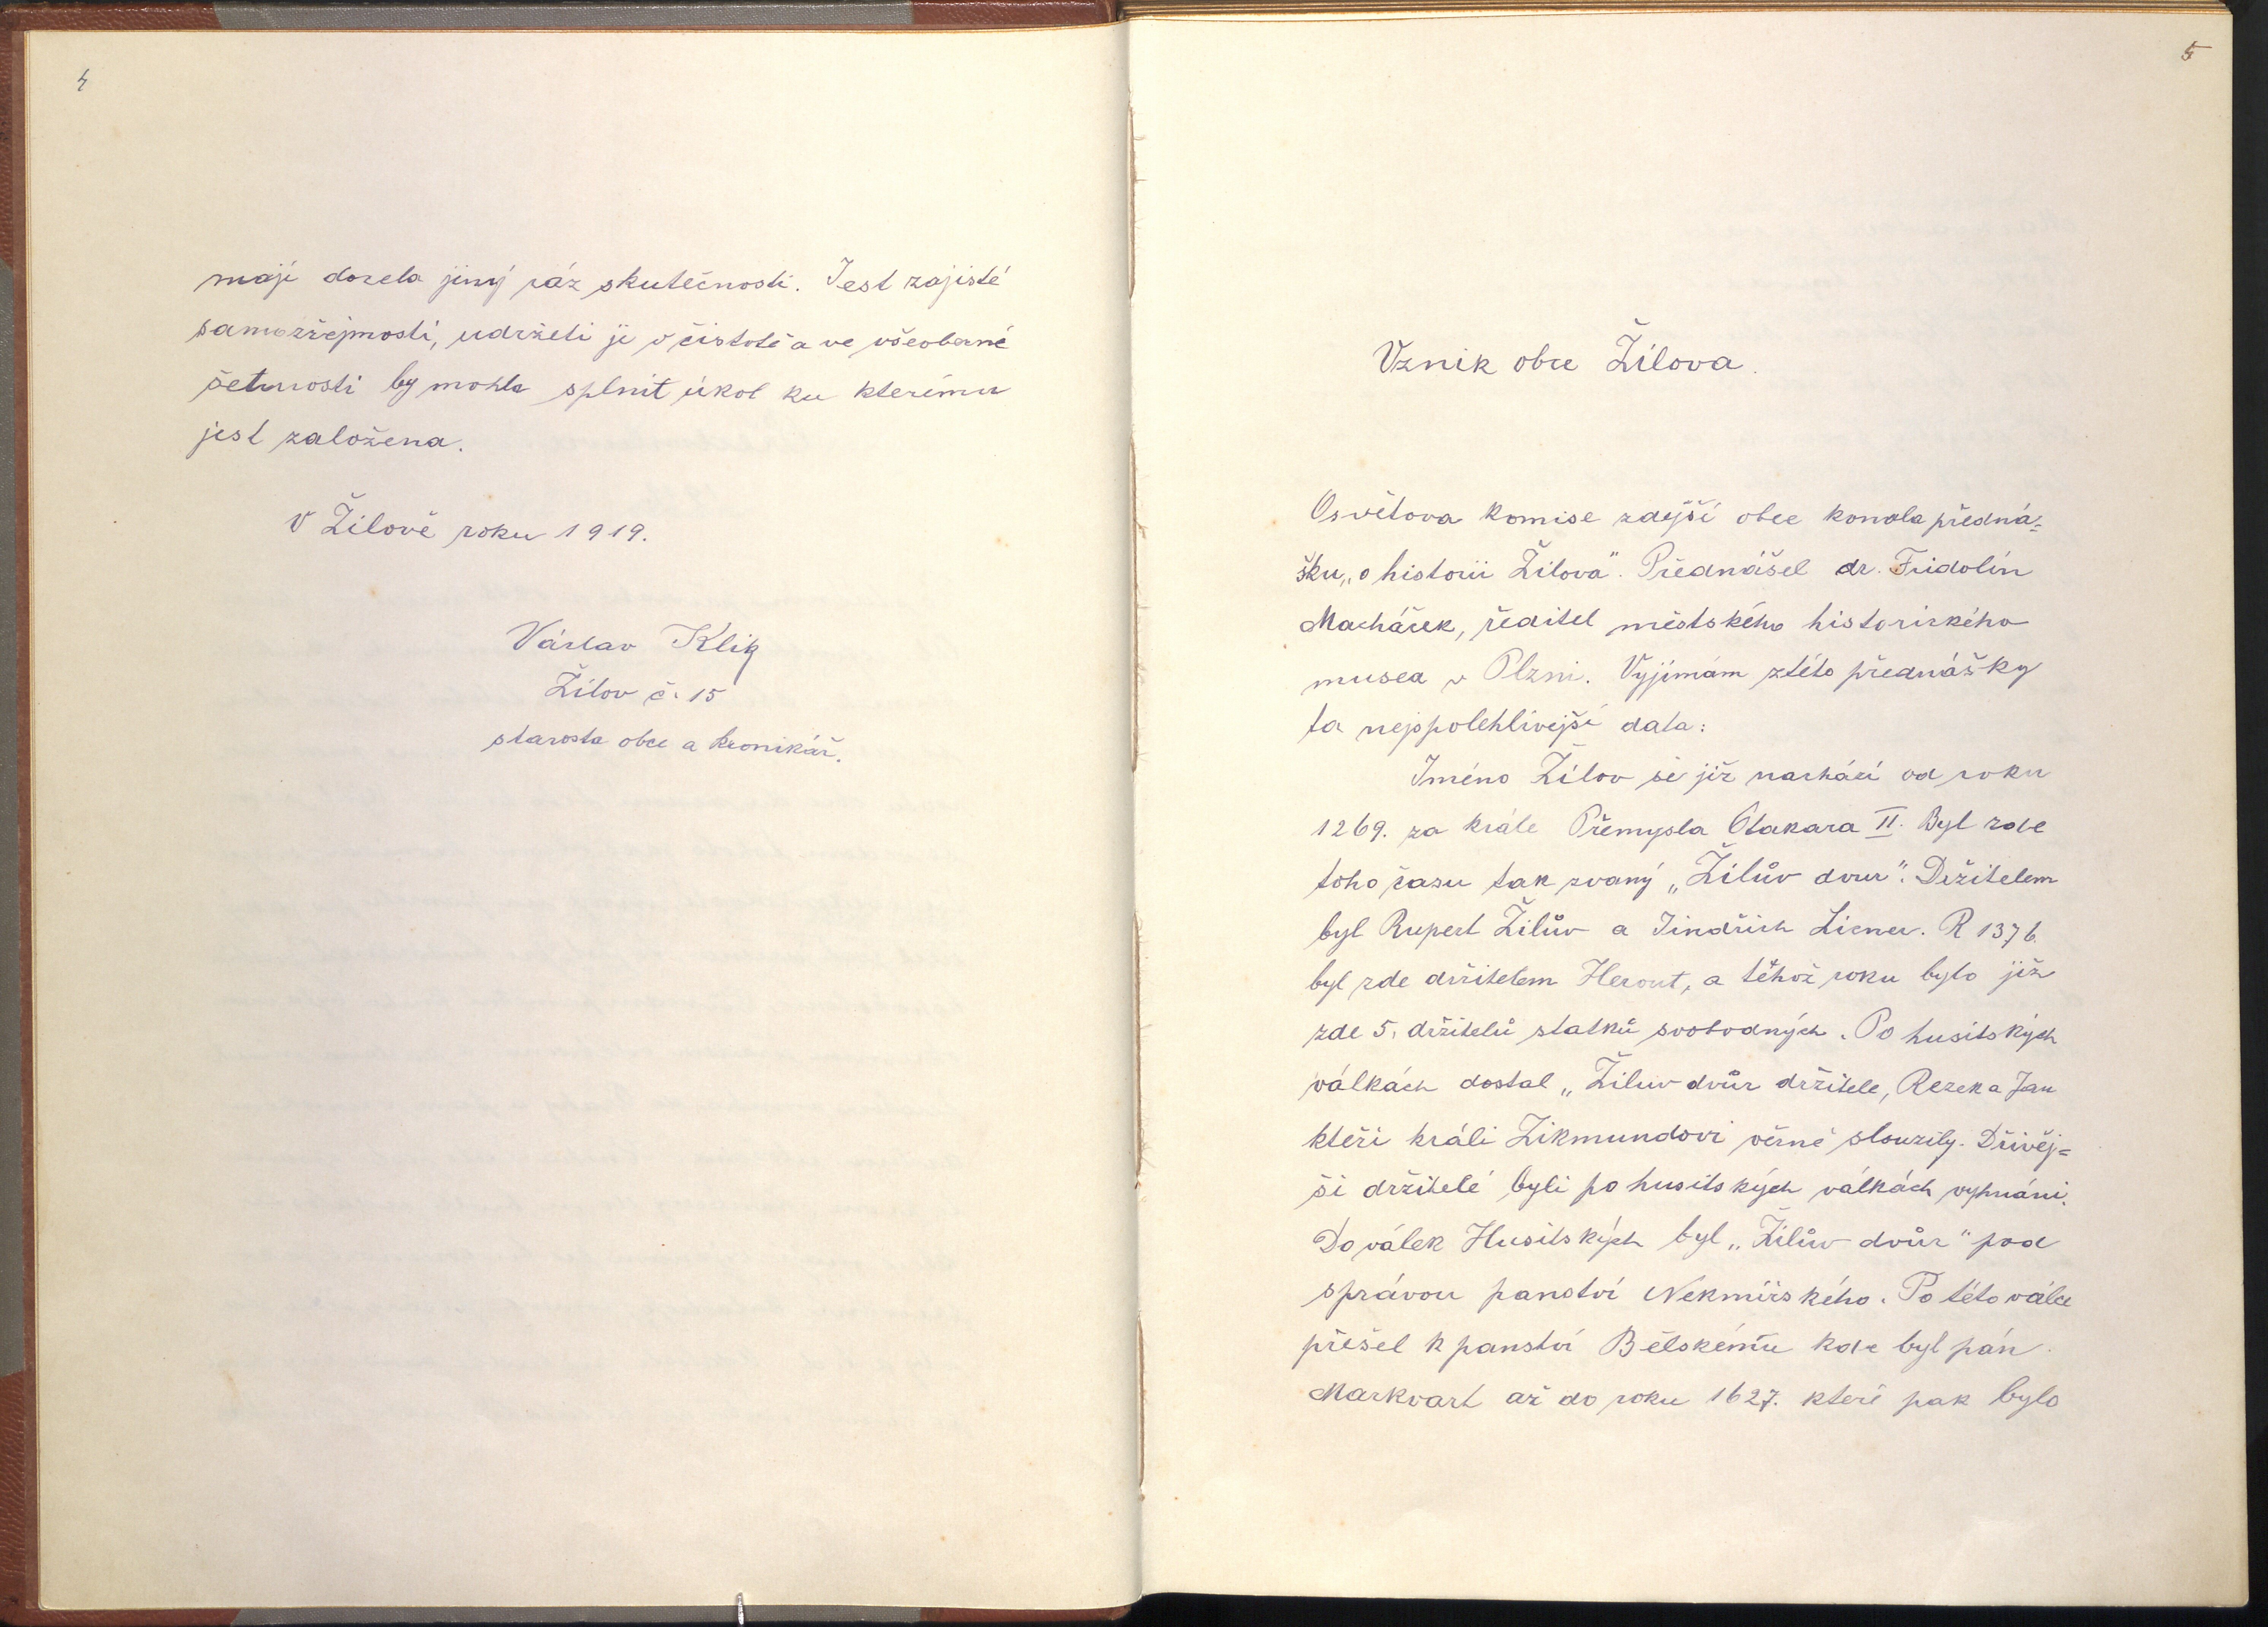 4
mají docela jiný ráz skutečnosti. Jest zajisté
samozřejmostí, udržeti ji v čistotě a ve všeobecné
šetrnosti by mohla splnit úkol ku kterému
jest založena.
V Žilově roku 1919.
Václav Klik
Žilov č. 15
starosta obce a kronikář.
5
Vznik obce Žilova.
Osvětova komise zdejší obce konala předná=
šku „o historii Žilova". Přednášel dr. Fridolín
Macháček, ředitel městského historického
musea v Plzni. Vyjímám ztéto přednášky
ta nejspolehlivejší data:
Jméno Žilov se již nachází od roku
1269. za krále Přemysla Otakara II. Byl zde
toho času tak zvaný „Žilův dvur". Držitelem
byl Rupert Žilův a Jindřich Licner. R 1376.
byl zde držitelem Herout, a těhož roku bylo již
zde 5. držitelů statků svobodných. Po husitských
válkách dostal „Žiluv dvůr držitele, Rezek a Jan
kteři králi Zikmundovi věrně slouzily. Dřivěj=
ši držitelé byli po husitských válkách vyhnáni.
Do válek Husitských byl „Žilův dvůr" pod
správou panství Nekmířského. Po této válce
přešel k panství Bělskému kde byl pán
Markvart až do roku 1627. které pak bylo